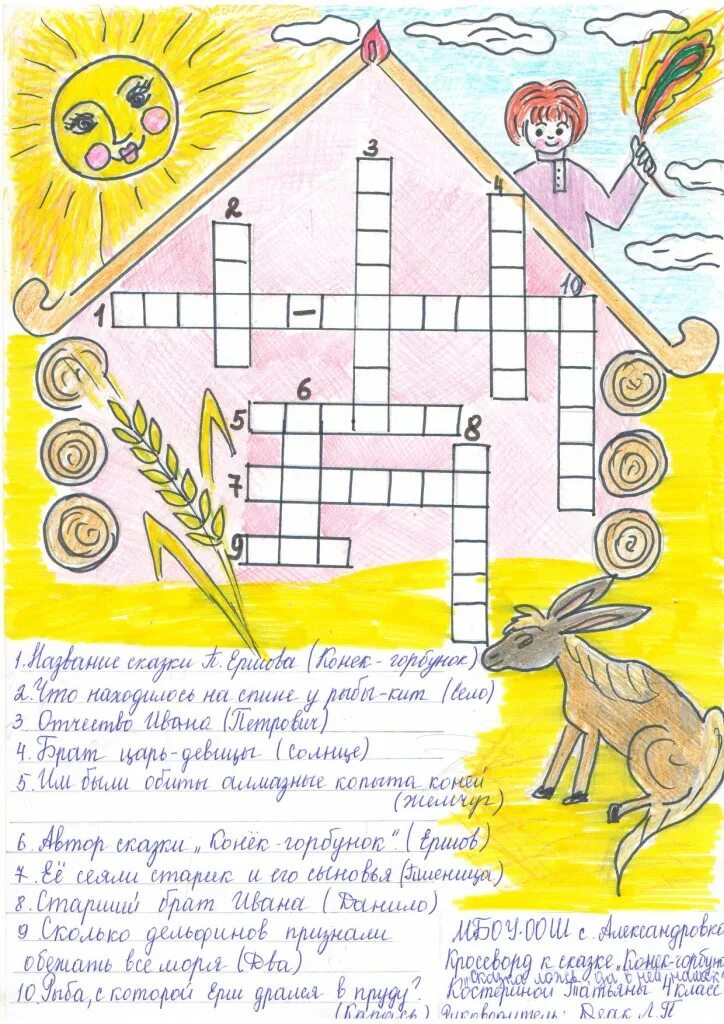 3
4
2
10
1
6
5
8
7
9
1. Название сказки П. Ершова (Конек-горбунок)
2. Что находилось на спине у рыбы-кит (село)
3 Отчество Ивана (Петрович)
4. Брат царь-девицы (Солнце)
5. Им были обиты алмазные копыта коней
(жемчуг)
6 Автор сказки „Конёк-горбунок". (Ершов)
7 Её сеяли старик и его сыновья (Пшеница)
8. Старший брат Ивана (Данило)
9 Сколько дельфинов признали
обежать все моря (Два)
10 Рыба, с которой Ерш дрался в пруду?
(Карась)
МБОУ ООШ с. Александровка
Кроссворд к сказке „Конек-горбун
"Сказка ложь, да в ней намек"
Костериной Татьяны 4 класс
Руководитель: Деак Л.П